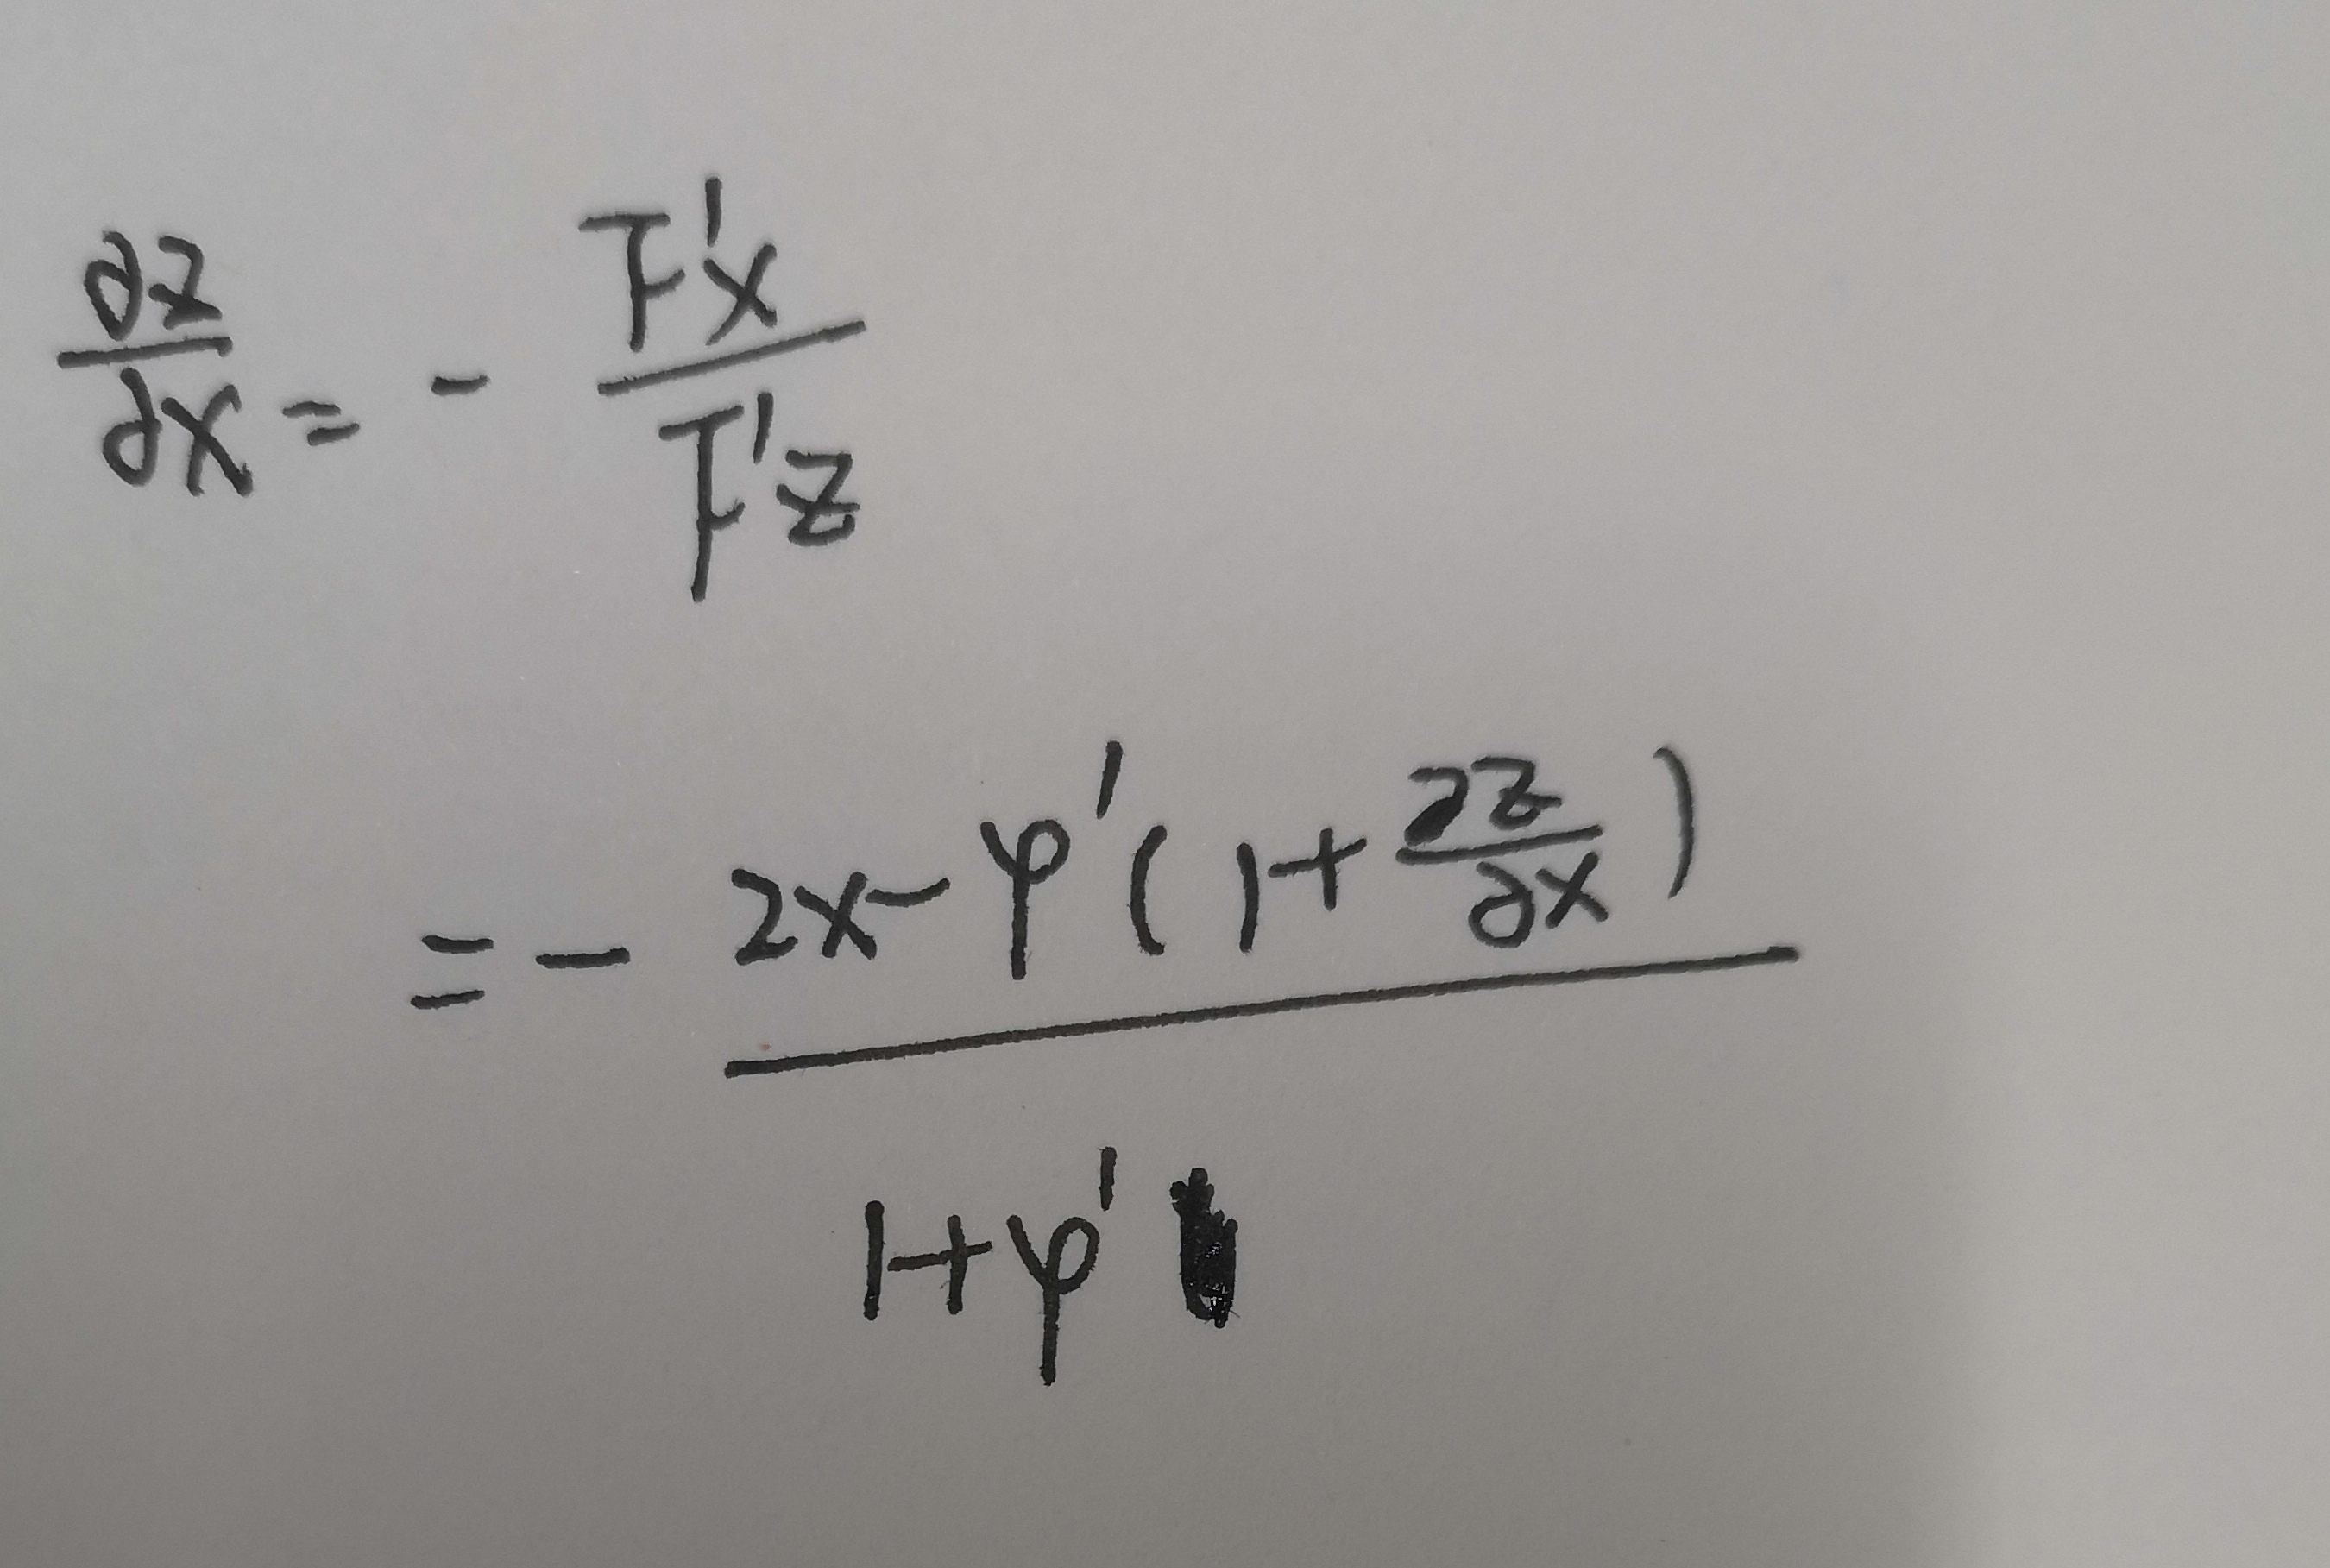 ∂z/∂x = - F'x/F'z
= - (2x - φ'(1 + ∂z/∂x))/(1 + φ')